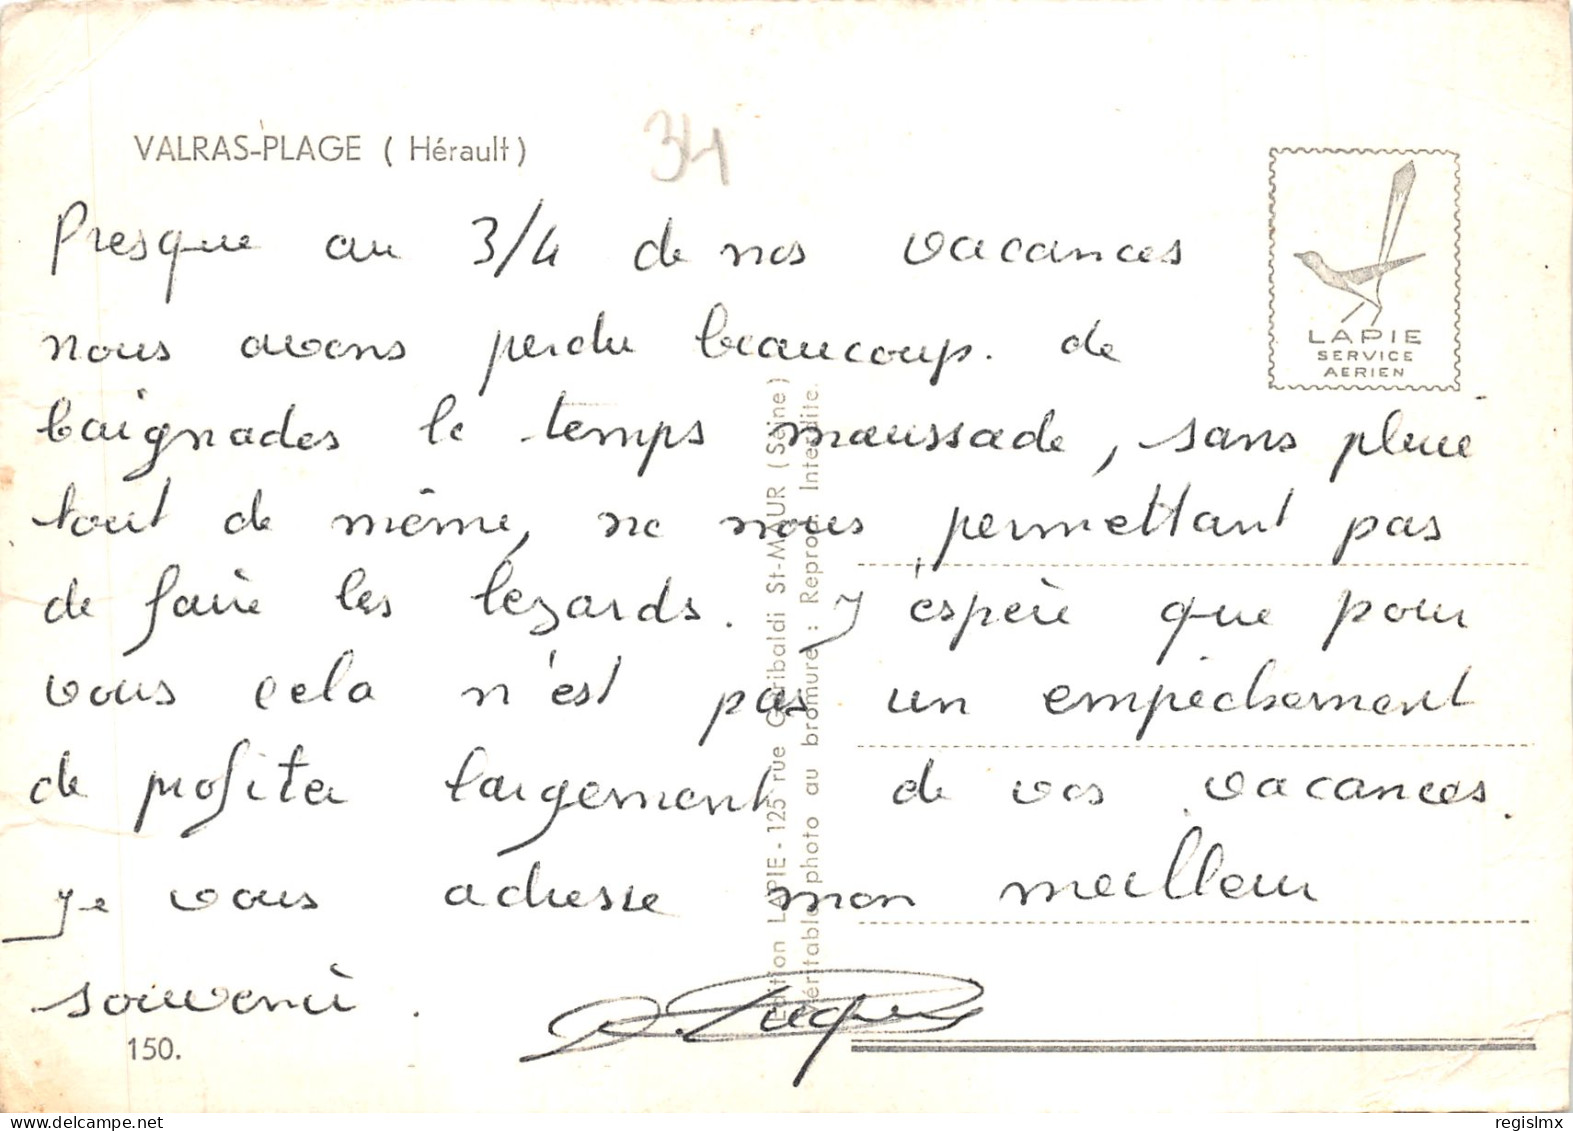 VALRAS-PLAGE ( Hérault )
34
LAPIE
SERVICE
AERIEN
Presque au 3/4 de nos vacances
nous avons perdu beaucoup. de
baignades le temps maussade, sans pluie
tout de même, ne nous permettant pas
de faire les lezards. J'espère que pour
vous cela n'est pas un empêchement
de profiter largement de vos vacances.
Je vous adresse mon meilleur
souvenir.
150.
Edition LAPIE - 125 rue Garibaldi St-MAUR (Seine)
Véritable photo au bromure : Reprod. Interdite.
regislmx
delcampe.net